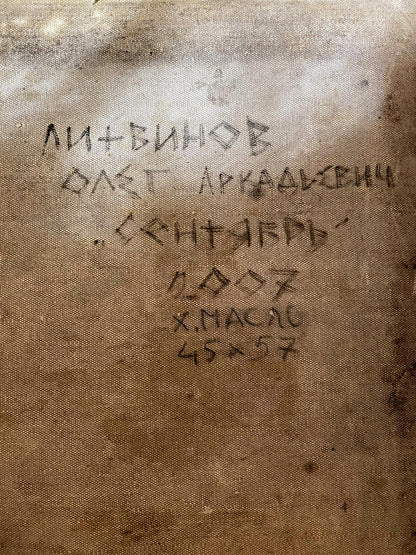 ЛИТВИНОВ
ОЛЕГ АРКАДЬЕВИЧ
„СЕНТЯБРЬ"
2007
Х.МАСЛО
45x57